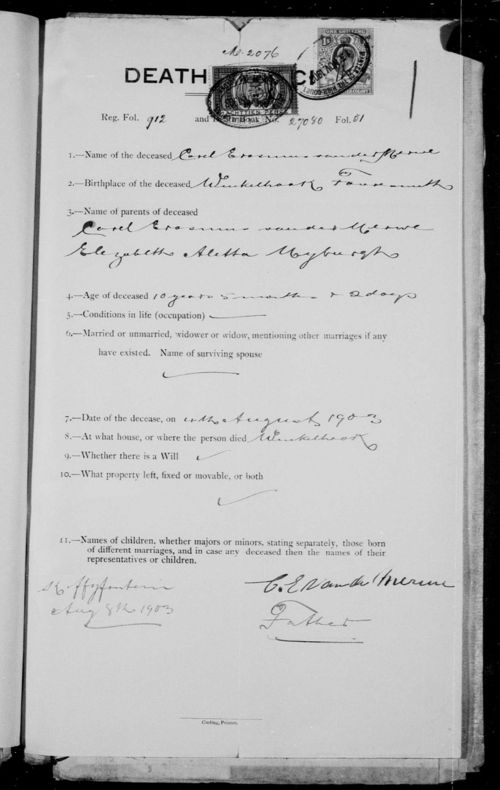 M. 2076
DEATH
Reg. Fol. 912 and Book No. 27090 Fol. 01
1.—Name of the deceased Carel Erasmus van der Merwe
2.—Birthplace of the deceased Winkelhaak
3.—Name of parents of deceased
Carel Erasmus van der Merwe
Elizabeth Aletta Myburgh
4.—Age of deceased 10 years 5 months & 2 days
5.—Conditions in life (occupation)
6.—Married or unmarried, widower or widow, mentioning other marriages if any
have existed. Name of surviving spouse
7.—Date of the decease, on 4th August 1903
8.—At what house, or where the person died Winkelhaak
9.—Whether there is a Will
10.—What property left, fixed or movable, or both
11.—Names of children, whether majors or minors, stating separately, those born
of different marriages, and in case any deceased then the names of their
representatives or children.
Aug 8th 1903
C. E. van de Merwe
Father
Printer.